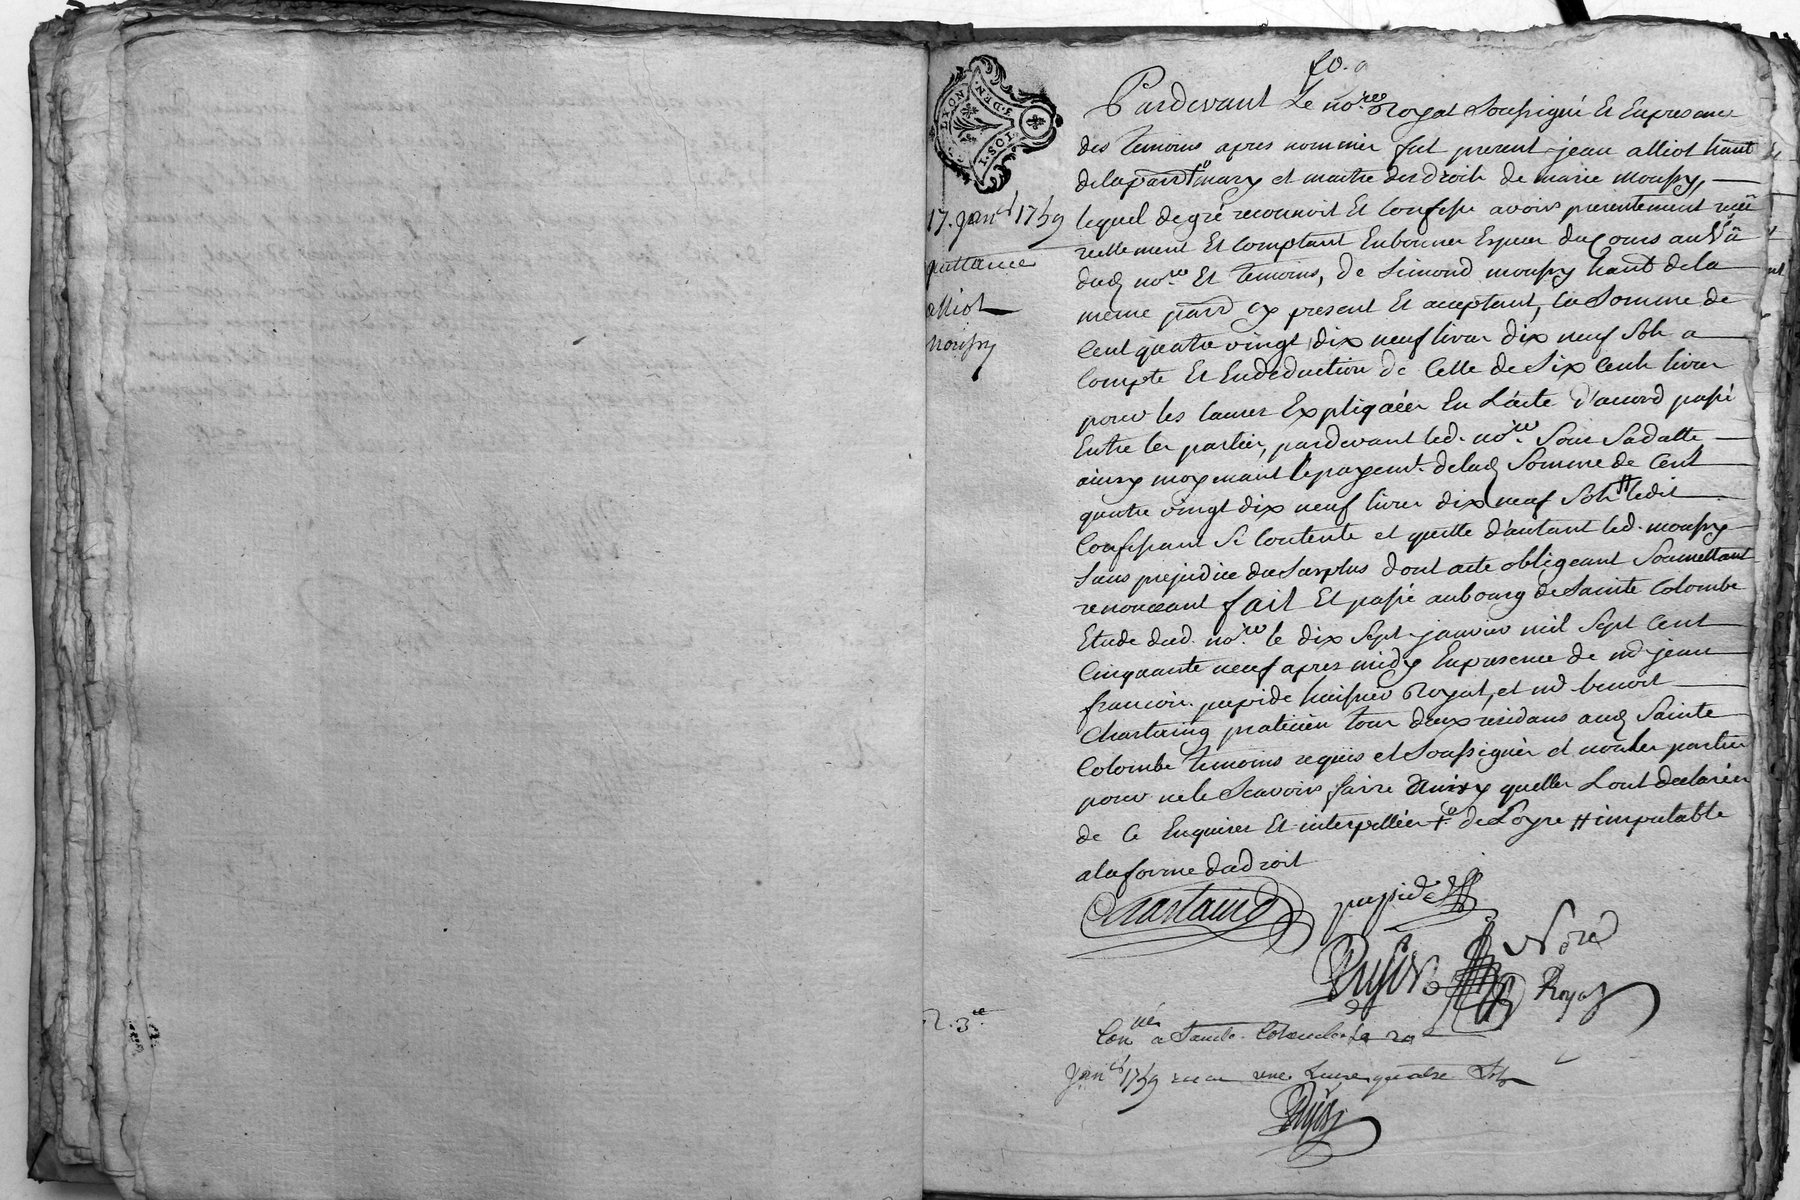 fo. 9
LYON
I. SOL
5. DEN.
17. Janr 1759
quittance
alliot
moussy
Pardevant Le nore Royal Soussigné Et Enpresence
des temoins apres nommés fut present jean alliot hant
delaparr mary et maitre des droits de marie moussy,
lequel de gré reconnoit Et Confesse avoir presentement receu
reellement Et Comptant En bonnes Espece du Cours
dud nore Et temoins, de Simond moussy hant de la
meme parr cy present Et aceptant, la Somme de
Cent quatre vingt dix neuf livres dix neuf Sols a
Compte Et En deduction de Celle de Six Cents livres
pour les causes Expliquées En L'acte d'accord passé
Entre les parties, pardevant led. nore Sous Sa datte
ainsy moyenant le payemt. de lad Somme de Cent
quatre vingt dix neuf livres dix neuf Sols # ledit
Confessant Se Contente et quitte d'autant led. moussy
Sans prejudice du Surplus dont acte obligeant Soumettant
renonceant fait Et passé au bourg de Sainte Colombe
Etude dud. nore le dix Sept janvier mil Sept Cent
Cinquante neuf apres midy Enpresence de md jean
francois pupide huissier Royal, et md benoit
Chartaing praticien tous deux residans aud Sainte
Colombe temoins requis et Soussignés et non les parties
pour ne le Scavoir faire Ainsy quelles Lont declarées
de Ce Enquises Et interpellées de Loyre # imputable
a la forme du droit
Chartaing pupide
Nore
Royal
R. 3s.
Conné a Sainte Colombe le 20
Janr 1759 une Livre quatre Sols